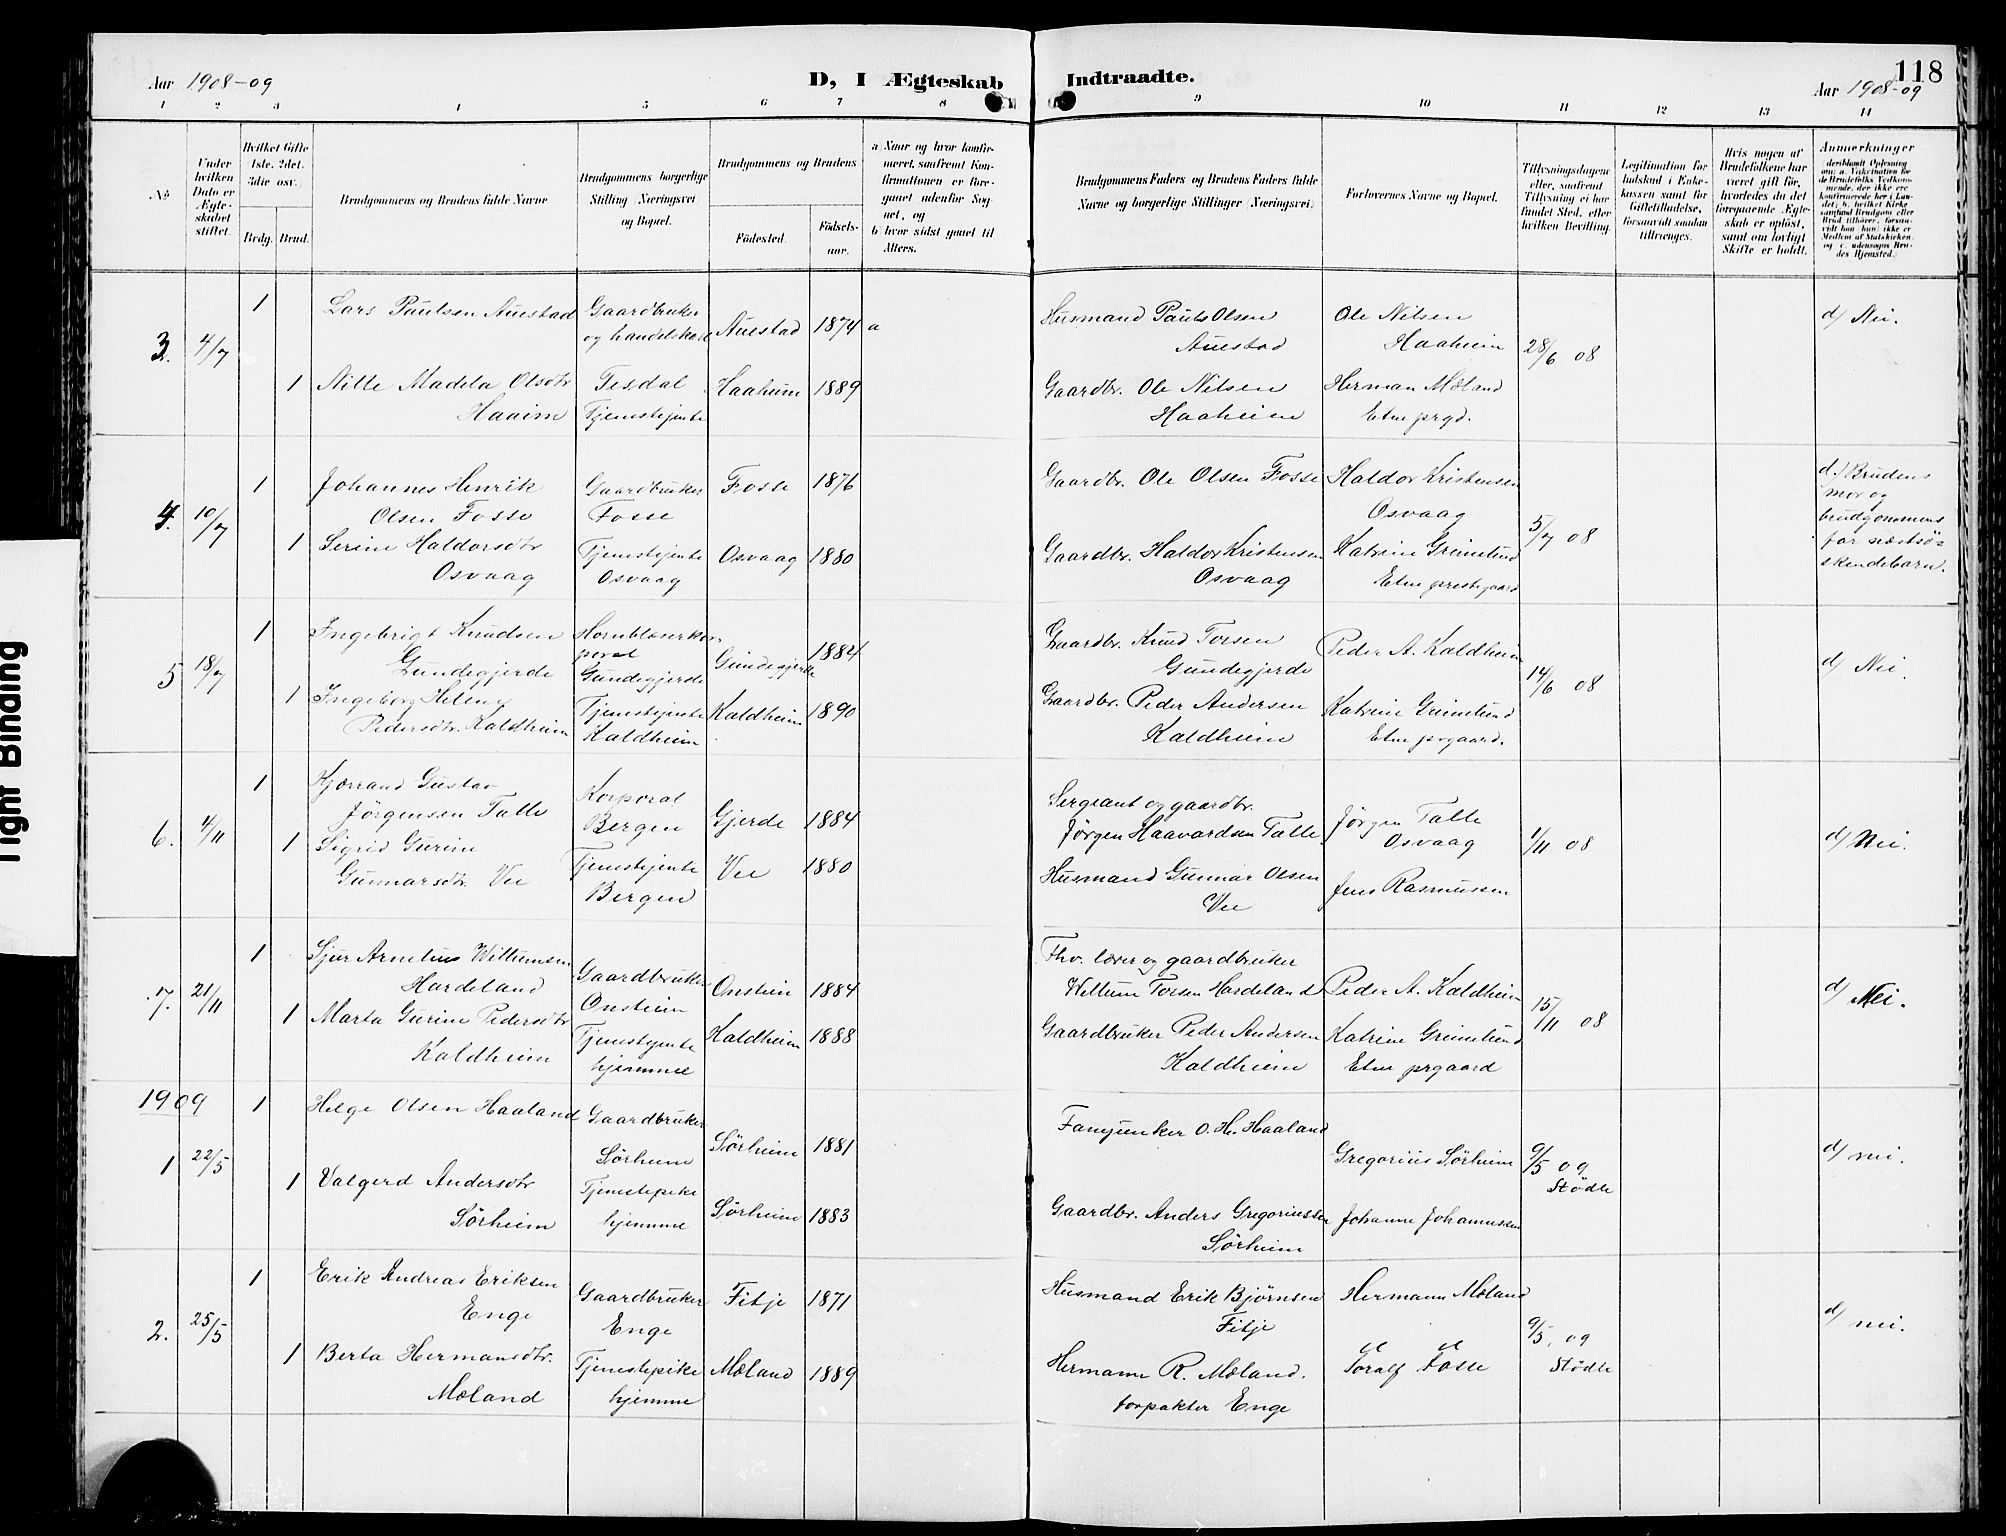 118
Aar 1908-09
D, I Ægteskab Indtraadte.
Aar 1908-09
1 2 3 4 5 6 7 8 9 10 11 12 13 14
No
Under hvilken Dato er Ægteskabet stiftet.
Hvilket Gifte 1ste. 2det. 3die osv.
Brdg. Brud.
Brudgommens og Brudens fulde Navne
Brudgommens borgerlige Stilling (Næringsvei) og Bopæl.
Brudgommens og Brudens
Fødested.
Fødselsaar.
a Naar og hvor konfirmeret, saafremt Konfirmationen er foregaaet udenfor Sognet, og
b hvor sidst gaaet til Alters.
Brudgommens Faders og Brudens Faders fulde Navne og borgerlige Stillinger (Næringsvei).
Forlovernes Navne og Bopæl.
Tillysningsdagene eller, saafremt Tillysning ei har fundet Sted, efter hvilken Bevilling.
Legitimation for Indskud i Enkekassen samt for Giftetilladelse, forsaavidt saadan tiltrænges.
Hvis nogen af Brudefolkene har været gift før, hvorledes da det foregaaende Ægteskab er opløst, samt om lovligt Skifte er holdt.
Anmærkninger
(deriblandt Oplysning om: a. Vakcination for de Brudefolks Vedkommende, der ikke ere konfirmerede her i Landet; b. hvilket Kirkesamfund Brudgom eller Brud tilhører, forsaavidt han (hun) ikke er Medlem af Statskirken, og c. udensogns Brudes Hjemsted.)
3. 4/7 1 Lars Paulsen Auestad Gaardbruker og handelskarl Auestad 1874 a Husmand Pauls Olsen Auestad Ole Nilsen Haaheim 28/6 08 d/ Nei.
1 Nille Madela Olsdtr Haaim Tesdal Tjenestejente Haaheim 1889 Gaardbr. Ole Nilsen Haaheim Herman Mæland Etne prgd.
4. 10/7 1 Johannes Henrik Olsen Fosse Gaardbruker Fosse Fosse 1876 Gaardbr. Ole Olsen Fosse Haldor Kristensen Osvaag 5/7 08 d.) Brudens mor og brudgommens far næstsøskendebarn.
1 Serine Haldorsdtr Osvaag Tjenestejente Osvaag Osvaag 1880 Gaardbr. Haldor Kristensen Osvaag Katrine Grimelund Etne prestegaard
5 18/7 1 Ingebrigt Knudsen Gundegjerde Hornblæserkorporal Gundegjerde Gundegjerde 1884 Gaardbr. Knud Torsen Gundegjerde Peder A. Kaldheim 14/6 08 d/ Nei.
1 Ingeborg Helene Pedersdtr. Kaldheim Tjenestejente Kaldheim Kaldheim 1890 Gaardbr. Peder Andersen Kaldheim Katrine Grimelund Etne prgaard.
6. 4/11 1 Kjærrand Gustav Jörgensen Tatle Korporal Bergen Gjerde 1884 Sergeant og gaardbr. Jørgen Haavardsen Tatle Jørgen Tatle Osvaag 1/11 08 d/ Nei.
1 Sigrid Gurine Gunnarsdtr. Vee Tjenestejente Bergen Vee 1880 Husmand Gunnar Olsen Vee Jens Rasmussen
7. 21/11 1 Sjur Arnelius Willumsen Hardeland Gaardbruker Onsteim Onsteim 1884 Fhv. lærer og gaardbruker Willum Torsen Hardeland Peder A. Kaldheim 15/11 08 d/ Nei.
1 Marta Gurine Pedersdtr Kaldheim Tjenestejente hjemme Kaldheim 1888 Gaardbruker Peder Andersen Kaldheim Katrine Grimelund Etne prgaard
1909
1 22/5 1 Helge Olsen Haaland Gaardbruker Sørheim Sørheim 1881 Fanejunker O. H. Haaland Gregorius Sørheim 9/5 09 Stødle d/ nei.
1 Valgerd Andersdtr Sørheim Tjenestepike hjemme Sørheim 1883 Gaardbr. Anders Gregoriussen Sørheim Johanne Johannessen
2. 25/5 1 Erik Andreas Eriksen Enge Gaardbruker Enge Fitje 1871 Husmand Erik Bjørnsen Fitje Hermann Mæland 9/5, 09 Stødle d/ nei.
1 Berta Hermansdtr. Mæland Tjenestepike hjemme Mæland 1889 Hermann R. Mæland. forpakter Enge Toralf Fosse
Tight Binding